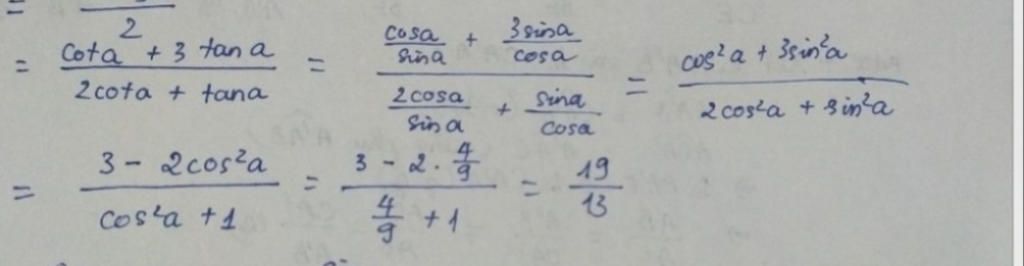 = ─── / 2
= (cota + 3 tana) / (2cota + tana) = (cosa/sina + 3sina/cosa) / (2cosa/sina + sina/cosa) = (cos²a + 3sin²a) / (2cos²a + sin²a)
= (3 - 2cos²a) / (cos²a + 1) = (3 - 2 · 4/9) / (4/9 + 1) = 19/13